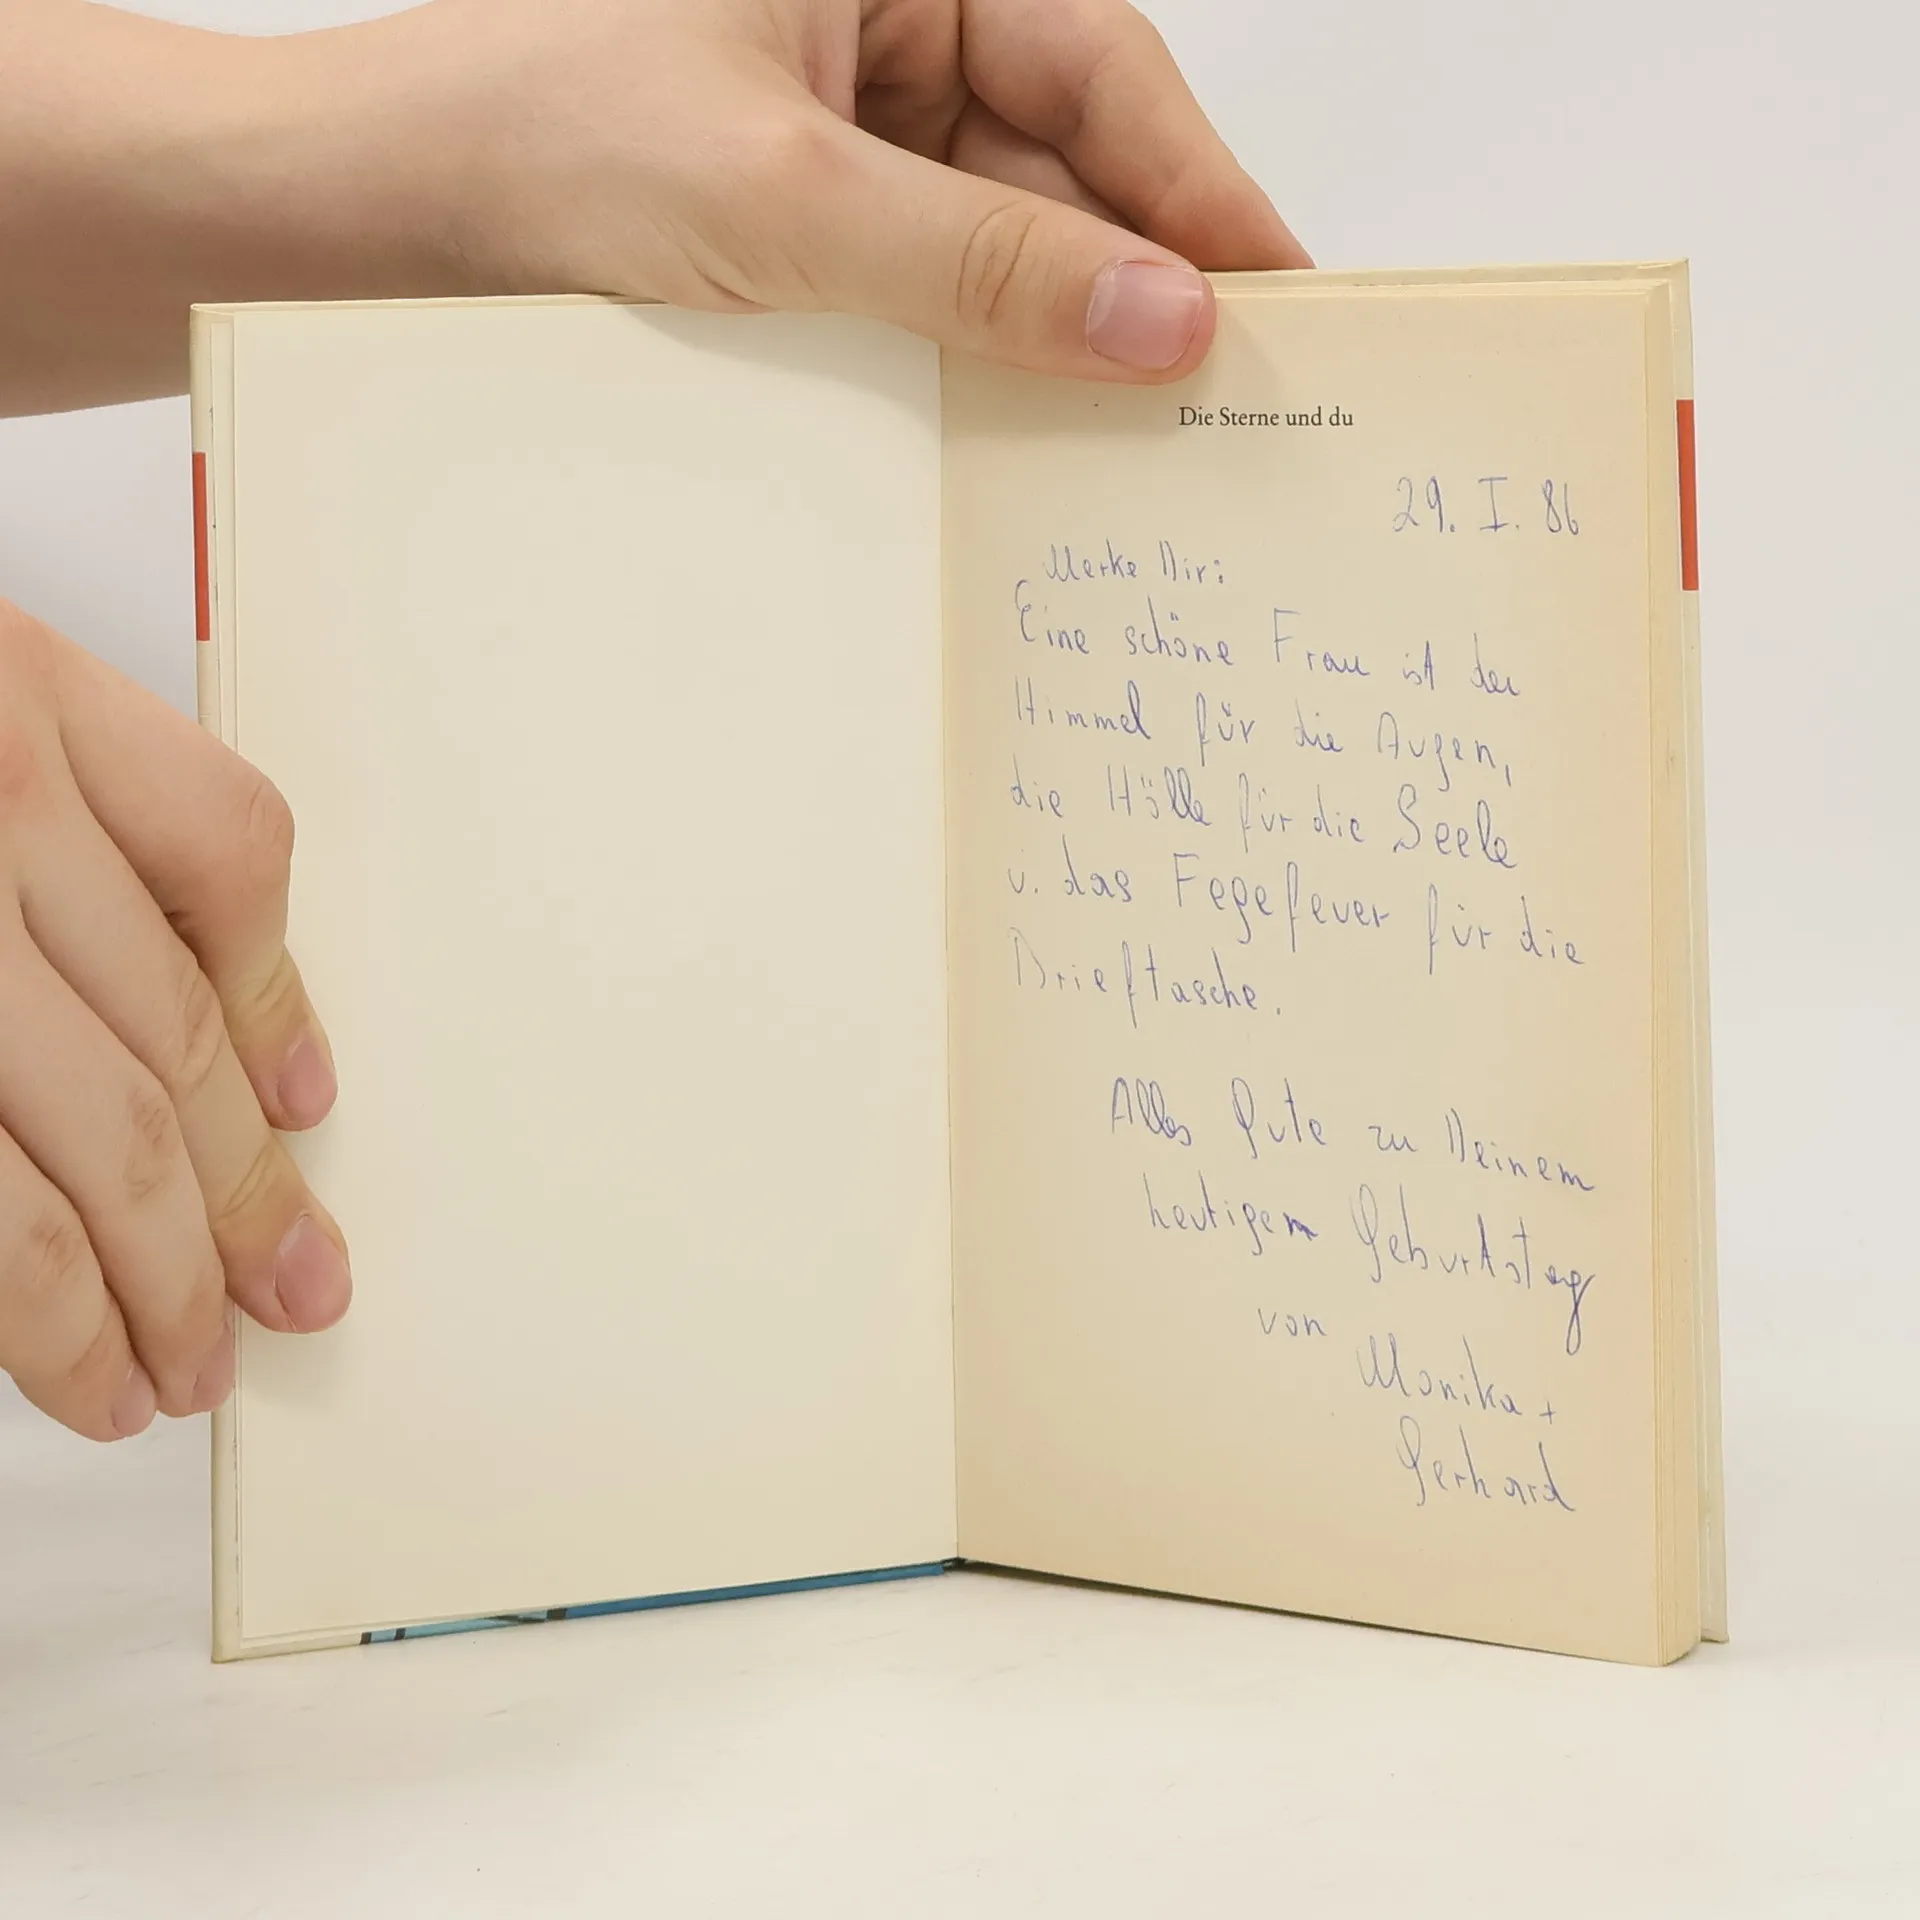 Die Sterne und du
29. I. 86
Merke Dir:
Eine schöne Frau ist der
Himmel für die Augen,
die Hölle für die Seele
u. das Fegefeuer für die
Brieftasche.
Alles Gute zu Deinem
heutigem Geburtstag
von
Monika +
Gerhard